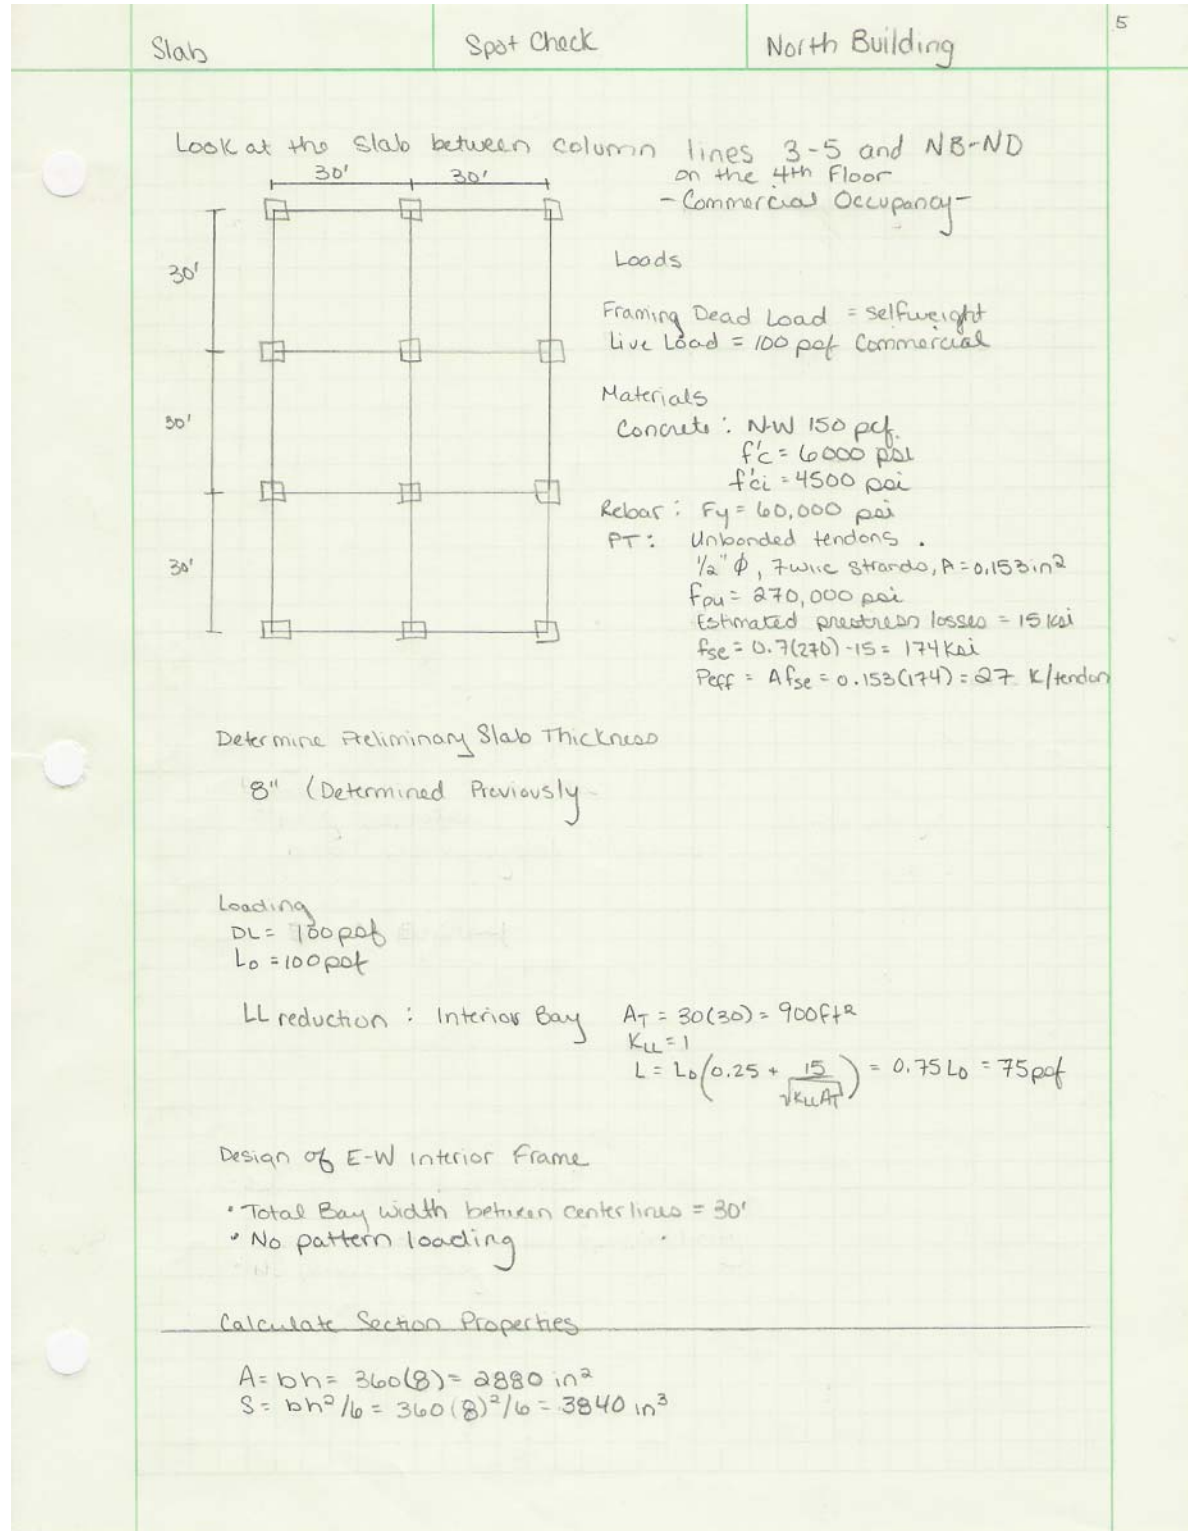 Slab
Spot Check
North Building
5
Look at the Slab between column lines 3-5 and NB-ND
on the 4th Floor
-Commercial Occupancy-
30' 30'
30'
30'
30'
Loads
Framing Dead Load = selfweight
Live Load = 100 psf Commercial
Materials
Concrete: NW 150 pcf.
f'c = 6000 psi
f'ci = 4500 psi
Rebar: Fy = 60,000 psi
PT: Unbonded tendons.
1/2" φ, 7 wire strands, A = 0.153 in²
fpu = 270,000 psi
Estimated prestress losses = 15 ksi
fse = 0.7(270) -15 = 174 ksi
Peff = Afse = 0.153(174) = 27 K/tendon
Determine Preliminary Slab Thickness
8" (Determined Previously
Loading
DL = 100 psf
Lo = 100 psf
LL reduction: Interior Bay AT = 30(30) = 900 ft²
KLL = 1
L = Lo(0.25 + 15/√KLLAT) = 0.75 Lo = 75 psf
Design of E-W interior Frame
• Total Bay width between centerlines = 30'
• No pattern loading
Calculate Section Properties
A = bh = 360(8) = 2880 in²
S = bh²/6 = 360(8)²/6 = 3840 in³